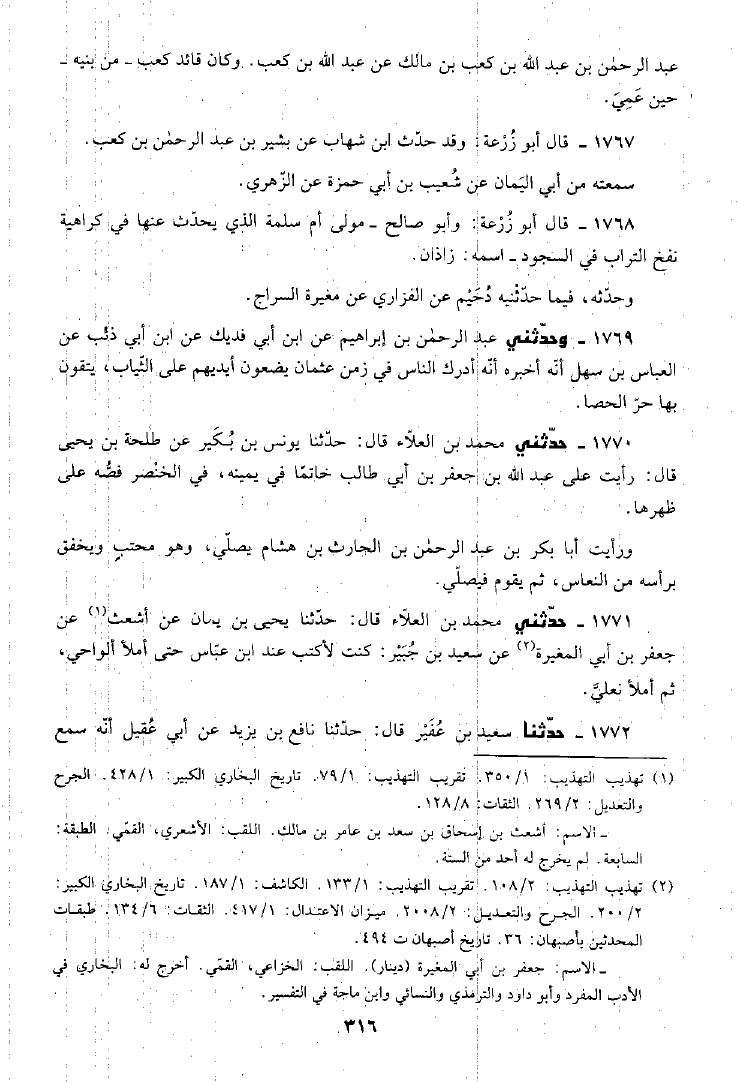 عبد الرحمٰن بن عبد الله بن كعب بن مالك عن عبد الله بن كعب. وكان قائد كعب ـ من بنيه ـ
حين عَمِيَ.
١٧٦٧ ـ قال أبو زُرْعة: وقد حدّث ابن شهاب عن بشير بن عبد الرحمٰن بن كعب.
سمعته من أبي اليَمان عن شُعيب بن أبي حمزة عن الزّهري.
١٧٦٨ ـ قال أبو زُرْعة: وأبو صالح ـ مولى أم سلمة الذي يحدّث عنها في كراهية
نفخ التراب في السجود ـ اسمه: زاذان.
وحدّثه، فيما حدّثنيه دُحَيْم عن الفزاري عن مغيرة السراج.
١٧٦٩ ـ وحدّثني عبد الرحمٰن بن إبراهيم عن ابن أبي فديك عن ابن أبي ذئب عن
العباس بن سهل أنّه أخبره أنّه أدرك الناس في زمن عثمان يضعون أيديهم على الثّياب، يتقون
بها حرّ الحصا.
١٧٧٠ ـ حدّثني محمد بن العلاء قال: حدّثنا يونس بن بُكَير عن طلحة بن يحيى
قال: رأيت على عبد الله بن جعفر بن أبي طالب خاتمًا في يمينه، في الخنْصر فصُّه على
ظهرها.
ورأيت أبا بكر بن عبد الرحمٰن بن الحارث بن هشام يصلّي، وهو محتبٍ ويخفق
برأسه من النعاس، ثم يقوم فيصلّي.
١٧٧١ ـ حدّثني محمد بن العلاء قال: حدّثنا يحيى بن يمان عن أشعث(١) عن
جعفر بن أبي المغيرة(٢) عن سعيد بن جُبَيْر: كنت لأكتب عند ابن عبّاس حتى أملأ ألواحي،
ثم أملأ نعليَّ.
١٧٧٢ ـ حدّثنا سعيد بن عُفَيْر قال: حدّثنا نافع بن يزيد عن أبي عُقيل أنّه سمع
(١) تهذيب التهذيب: ٣٥٠/١. تقريب التهذيب: ٧٩/١. تاريخ البخاري الكبير: ٤٢٨/١. الجرح
والتعديل: ٢٦٩/٢. الثقات: ١٢٨/٨.
ـ الاسم: أشعث بن إسحاق بن سعد بن عامر بن مالك. اللقب: الأشعري، القمّي. الطبقة:
السابعة. لم يخرج له أحد من الستة.
(٢) تهذيب التهذيب: ١٠٨/٢. تقريب التهذيب: ١٣٣/١. الكاشف: ١٨٧/١. تاريخ البخاري الكبير:
٢٠٠/٢. الجرح والتعديل: ٢٠٠٨/٢. ميزان الاعتدال: ٤١٧/١. الثقات: ١٣٤/٦. طبقات
المحدثين بأصبهان: ٣٦. تاريخ أصبهان ت ٤٩٤.
ـ الاسم: جعفر بن أبي المغيرة (دينار). اللقب: الخزاعي، القمّي. أخرج له: البخاري في
الأدب المفرد وأبو داود والترمذي والنسائي وابن ماجة في التفسير.
٣١٦